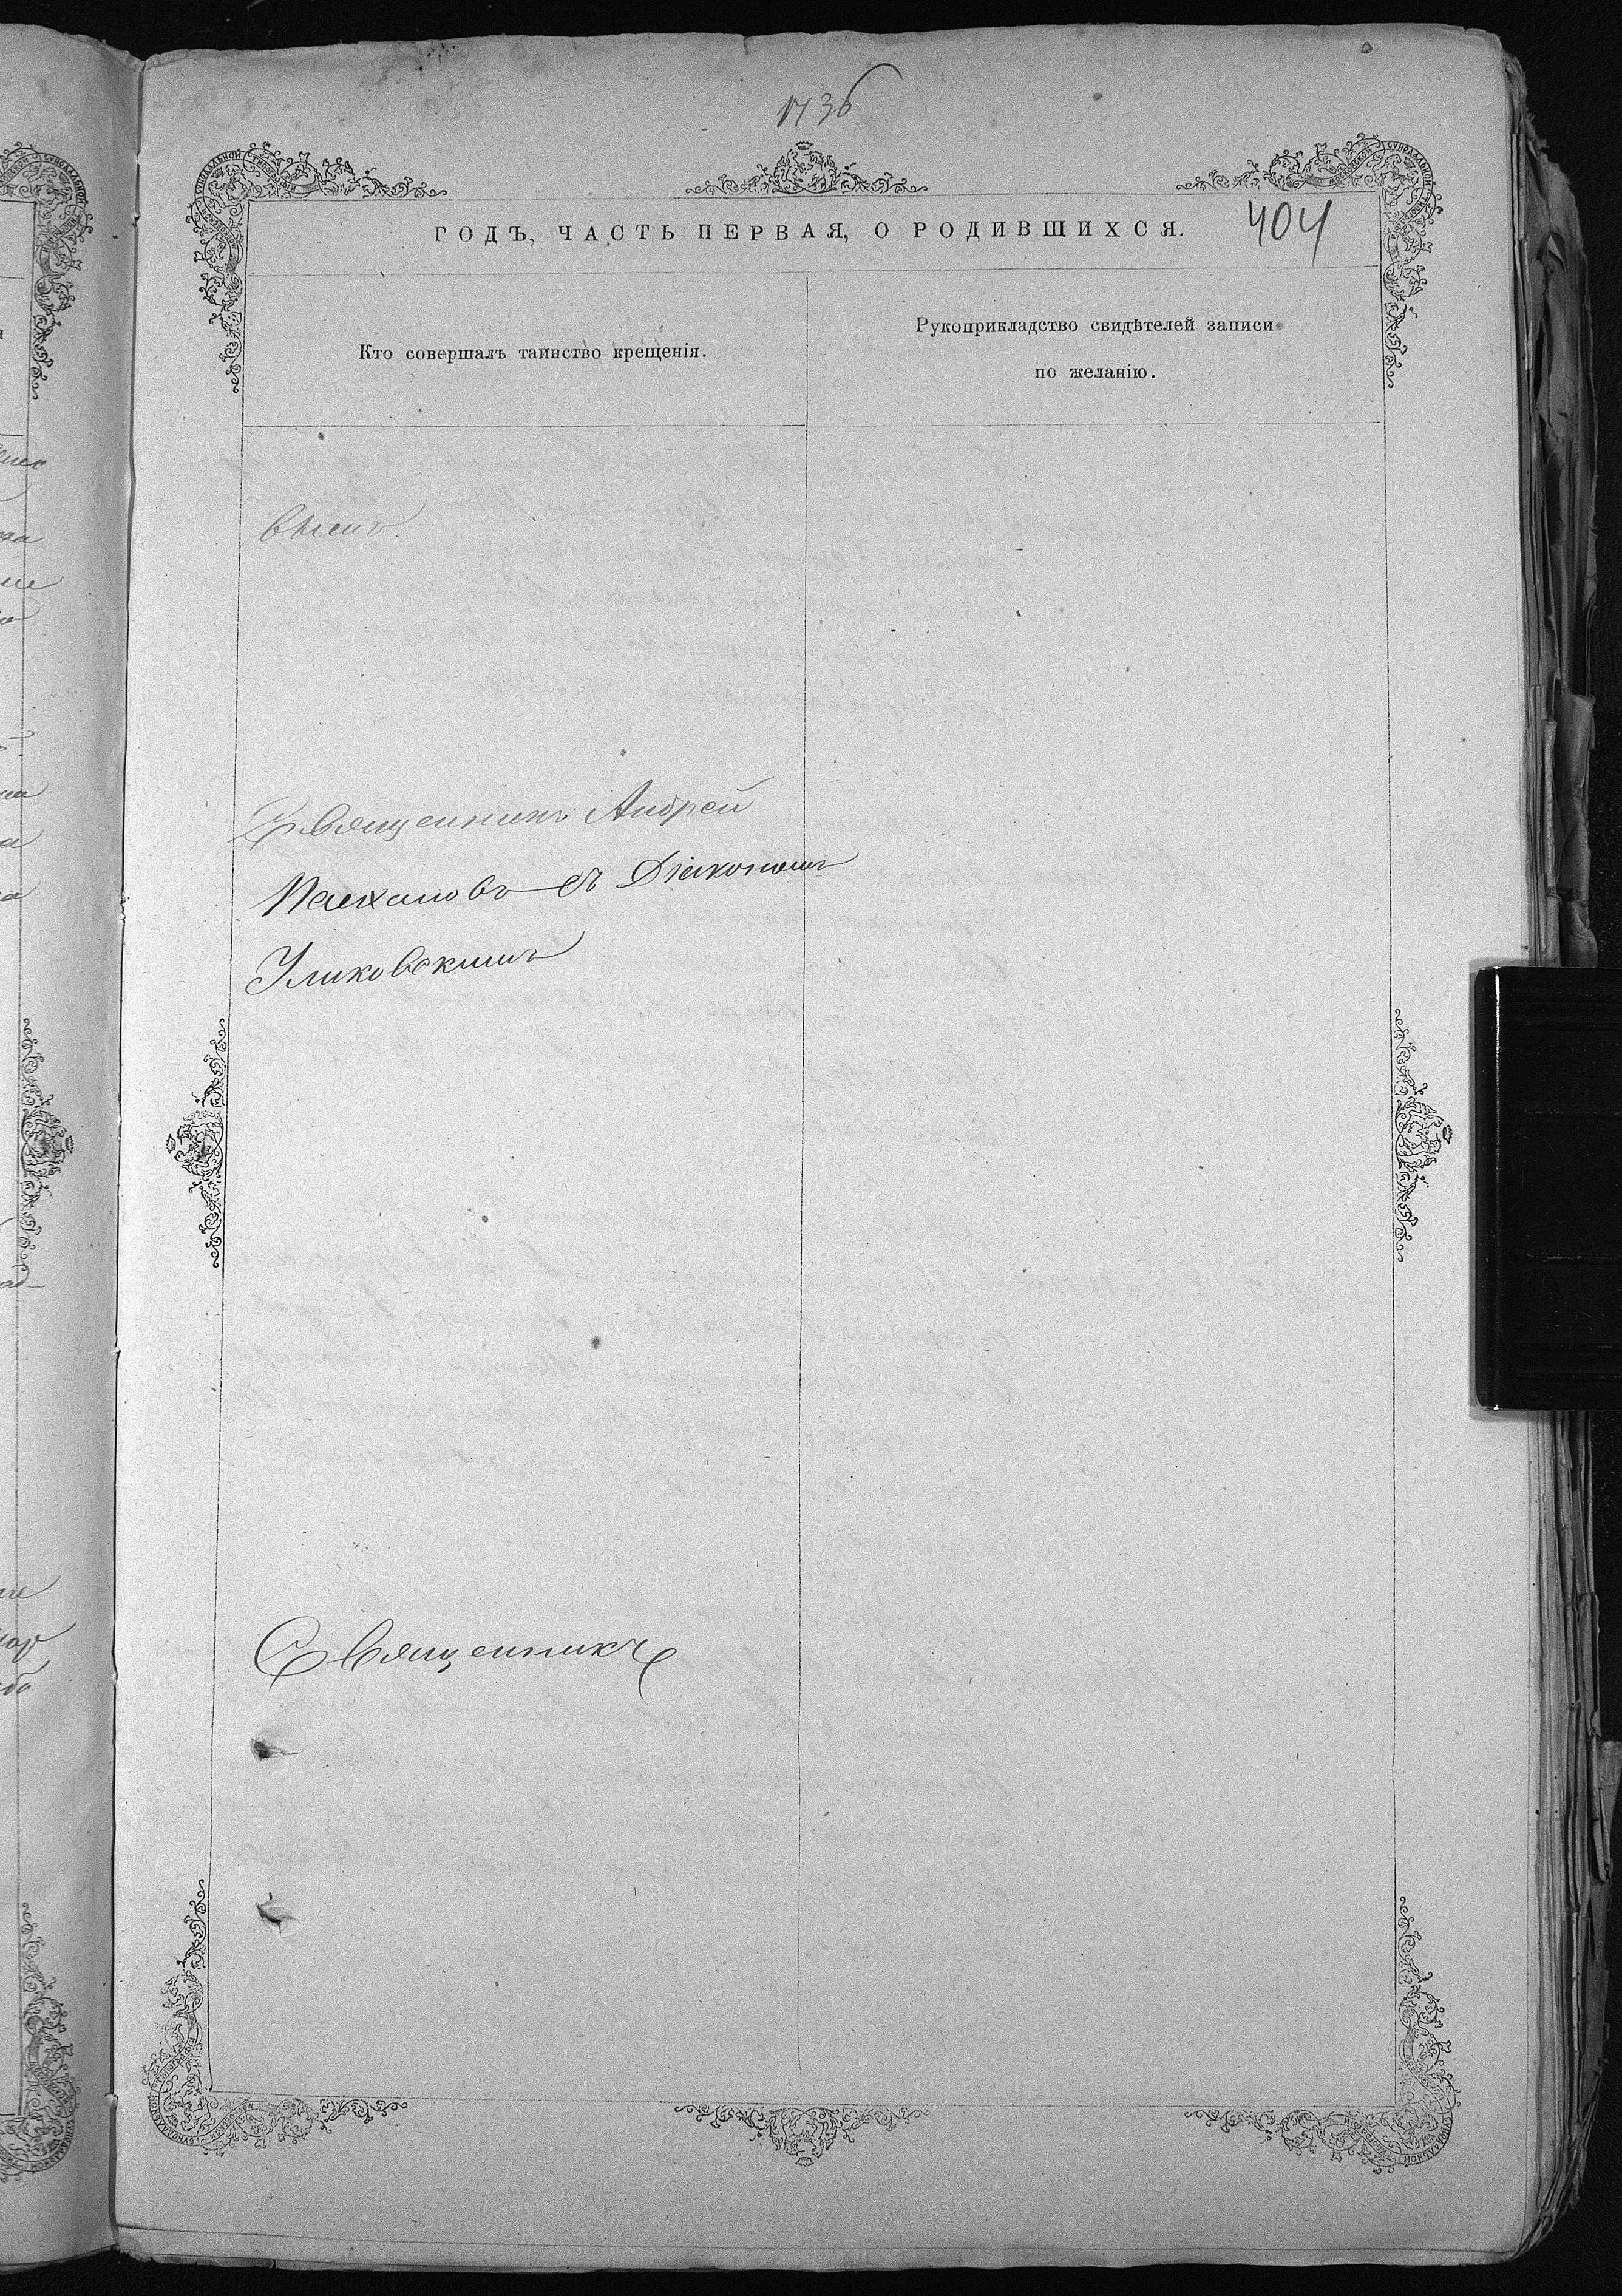 1736
ГОДЪ, ЧАСТЬ ПЕРВАЯ, О РОДИВШИХСЯ.
404
Кто совершалъ таинство крещенія.
Рукоприкладство свидѣтелей записи
по желанію.
Священникъ Андрей
съ Діакономъ
Священникъ